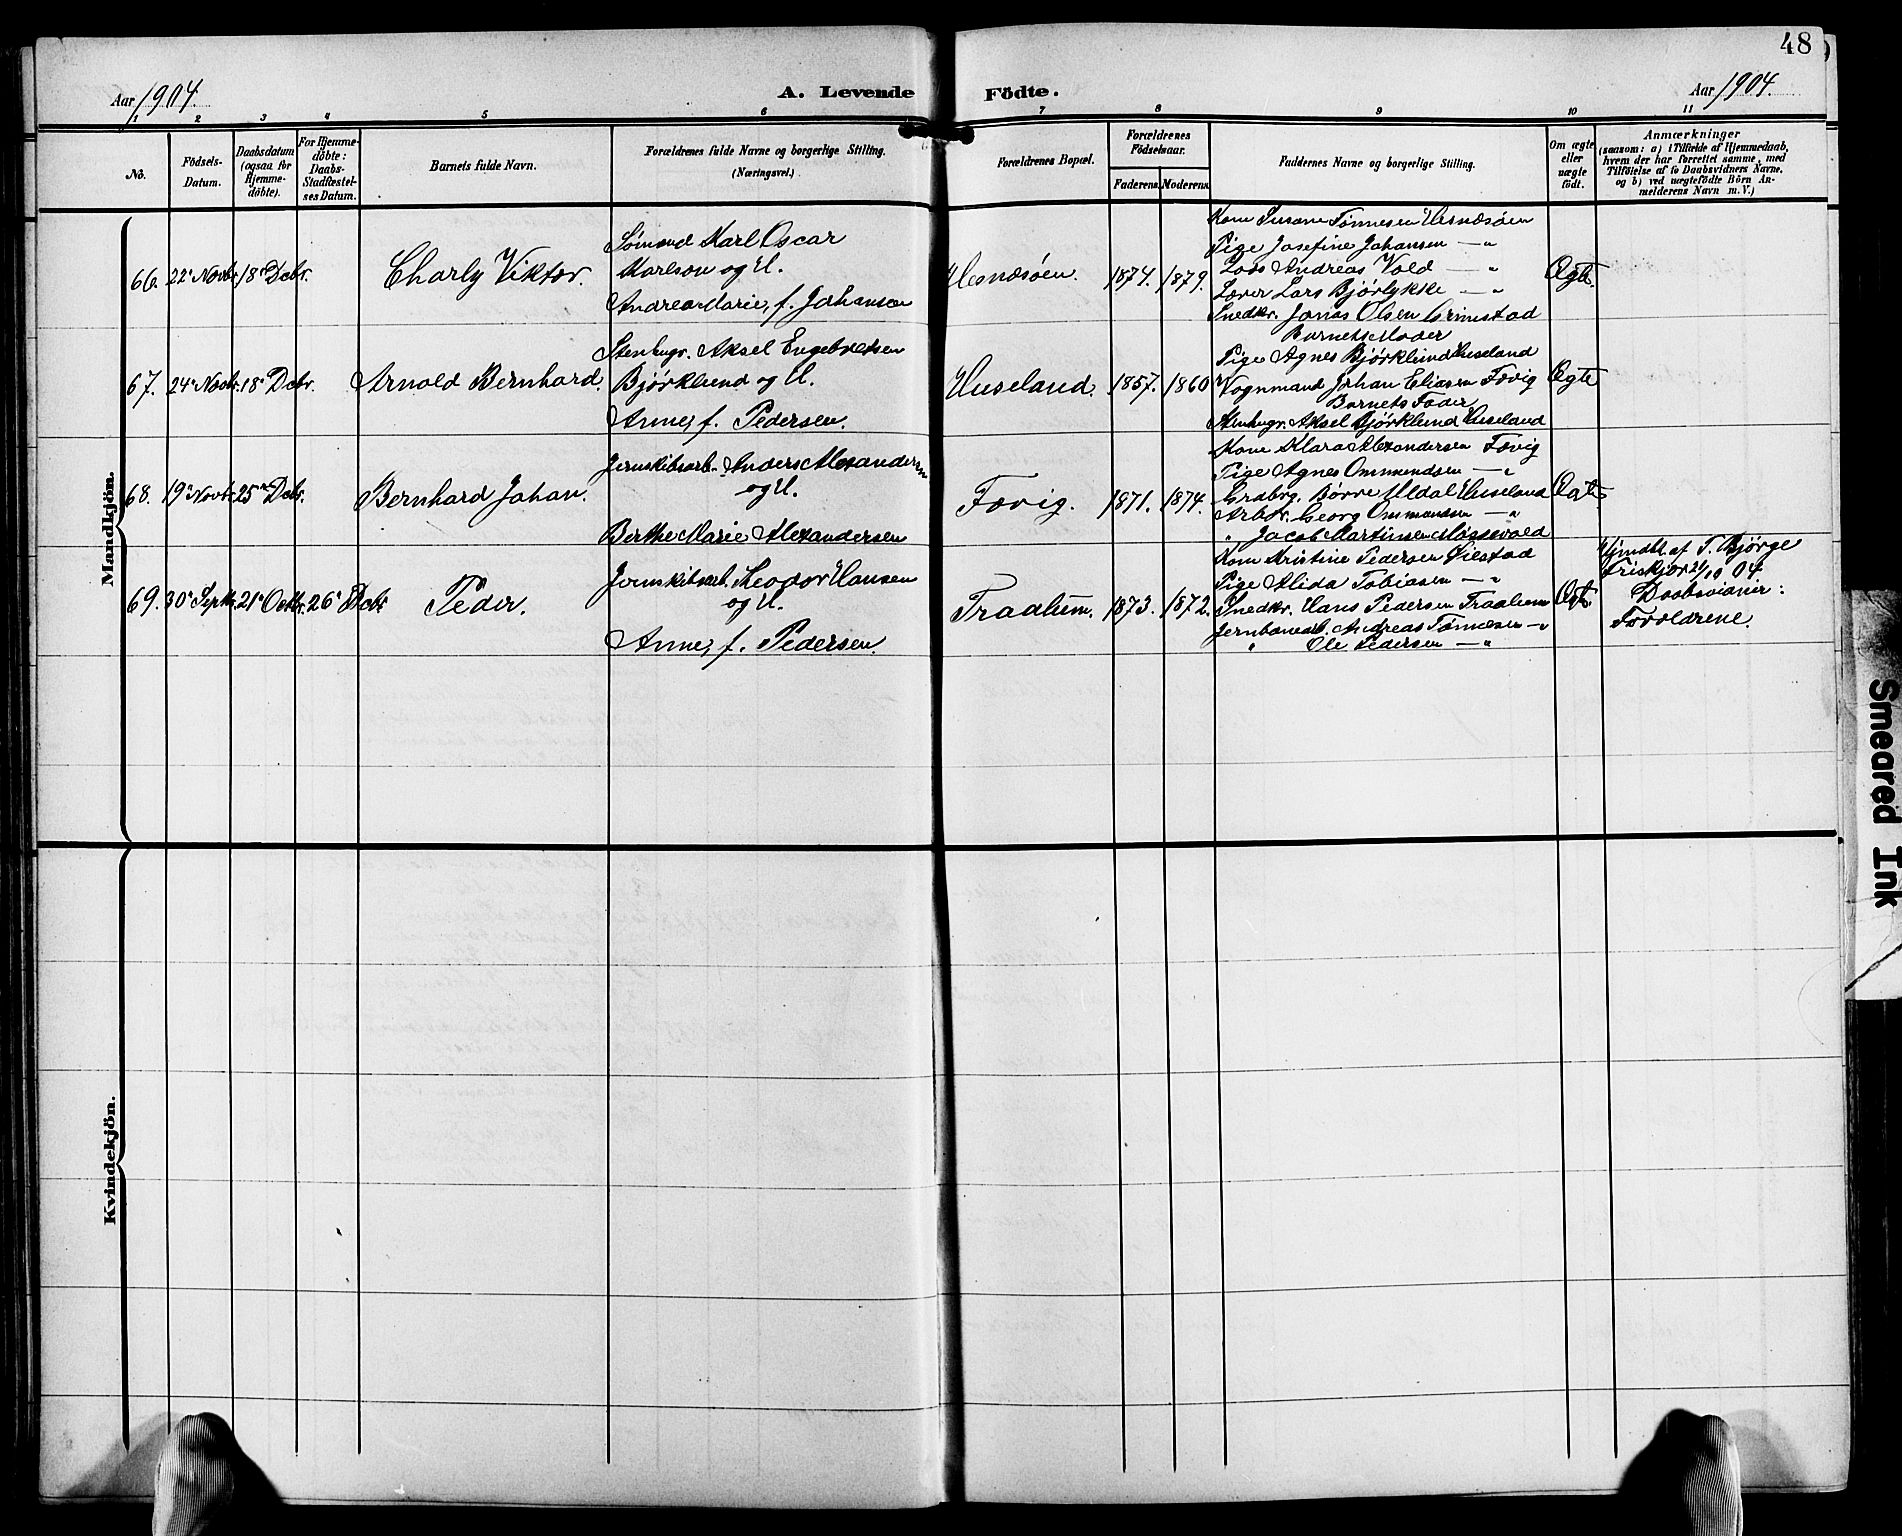 48
Aar 1904.
A. Levende Födte.
Aar 1904.
1 2 3 4 5 6 7 8 9 10 11
No.
Födsels-
Datum.
Daabsdatum
(ogsaa for
Hjemme-
döbte).
For Hjemme-
döbte:
Daabs-
Stadfæstel-
ses Datum.
Barnets fulde Navn.
Forældrenes fulde Navne og borgerlige Stilling.
(Næringsvei.)
Forældrenes Bopæl.
Forældrenes
Födselsaar.
Faderens.
Moderens.
Faddernes Navne og borgerlige Stilling.
Om ægte
eller
uægte
födt.
Anmærkninger
(saasom: a) i Tilfælde af Hjemmedaab,
hvem der har forrettet samme, med
Tilföielse af to Daabsvidners Navne,
og b) ved uægtefödte Börn An-
melderens Navn m. V.)
Mandkjön.
66. 22de Novbr. 18de Decbr.
Charly Viktor.
Sømand Karl Oscar
Karlson og H.
Andrea Marie, f. Johansen
Hesnæsøen. 1874. 1879.
Kone Susane Tønnesen Hesnæsøen
Pige Josefine Johansen — "
Lods Andreas Vold — "
Lærer Lars Bjørlykke — "
Snedkr. Jonas Olsen Grimstad
Ægte
67. 24de Novbr. 18de Decbr.
Arnold Bernhard.
Stenhugr. Aksel Engebretsen
Bjørklund og H.
Anne, f. Pedersen.
Huseland. 1857. 1860
Barnets Moder
Pige Agnes Bjørklund Huseland
Vognmand Johan Eliasen Fævig
Barnets Fader
Stenhugr. Aksel Bjørklund Huseland
Ægte
68. 19de Novbr. 25de Decbr.
Bernhard Johan.
Jernskibsarb. Anders Alexandersen
og H.
Berthe Marie Alexandersen
Fævig. 1871. 1874.
Kone Klara Alexandersen Fævig
Pige Agnes Ommundsen — "
Grdbrg. Børre Uldal Huseland
Arbdr. Georg Ommundsen — "
" Jacob Martinsen Mossevold
Ægte
69. 30de Septbr. 21de Octbr. 26de Decbr.
Peder.
Jernskibsarb. Theodor Hansen
og H.
Anne, f. Pedersen.
Traalum. 1873. 1872.
Kone Kristine Pedersen Øiestad
Pige Alida Tobiasen — "
Snedkr. Hans Pedersen Traalum
Jernbanearb. Andreas Tønnesen — "
" Ole Pedersen — "
Ægte
Hjmdbt. af T. Bjørge
Friskjor 21/10 04
Daabsvidner:
Forældrene.
Kvindekjön.
Smeared Ink